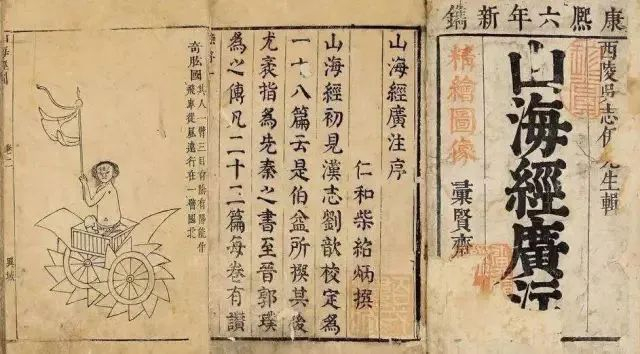 康熙六年新鐫
西陵吳志伊先生輯
山海經廣
精繪圖像
彙賢齋
山海經廣注序
仁和柴紹炳撰
山海經初見漢志劉歆校定為
一十八篇云是伯益所撰其後
尤袤指為先秦之書至晉郭璞
為之傳凡二十三篇每卷有讚
奇肱國
其人一臂三目有陰有陽能作
飛車從風遠行在一臂國北
異域